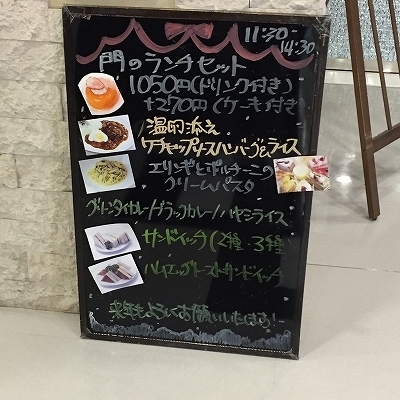 11:30-
14:30
門のランチセット
1050円(ドリンク付き)
+270円(ケーキ付き)
温卵添え
ケチャップソースハンバーグ&ライス
エリンギとポルチーニの
クリームパスタ
グリーンタイカレー/ブラックカレー/ハヤシライス
サンドイッチ(2種 3種
トーストサンドイッチ
来年もよろしくお願いいたします!